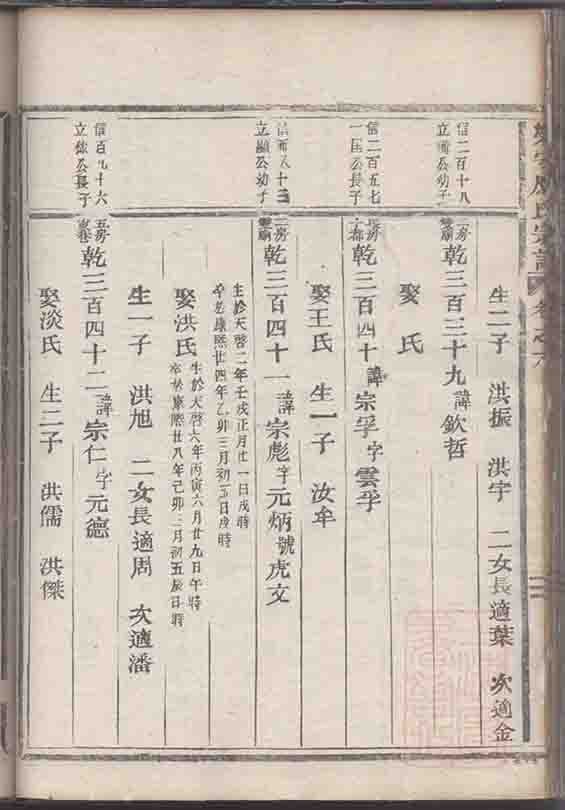 生二子 洪振 洪宇 二女長適葉 次適金
信二百十八
立 公幼子
乾三百三十九諱欽哲
娶 氏
信二百五七
一 公長子
乾三百四十諱宗孚字雲孚
娶王氏 生一子 汝牟
立顯公幼子
乾三百四十一諱宗彪字元炳號虎文
生於天啓二年壬戌正月廿一日戌時
卒於康熙廿四年乙卯三月初三日戌時
娶洪氏
生於天啓六年丙寅六月廿九日午時
卒於康熙廿八年己卯三月初五辰日時
生一子 洪旭 二女長適周 次適潘
信百九十六
立 公長子
五房
乾三百四十二諱宗仁字元德
娶淡氏 生二子 洪儒 洪傑